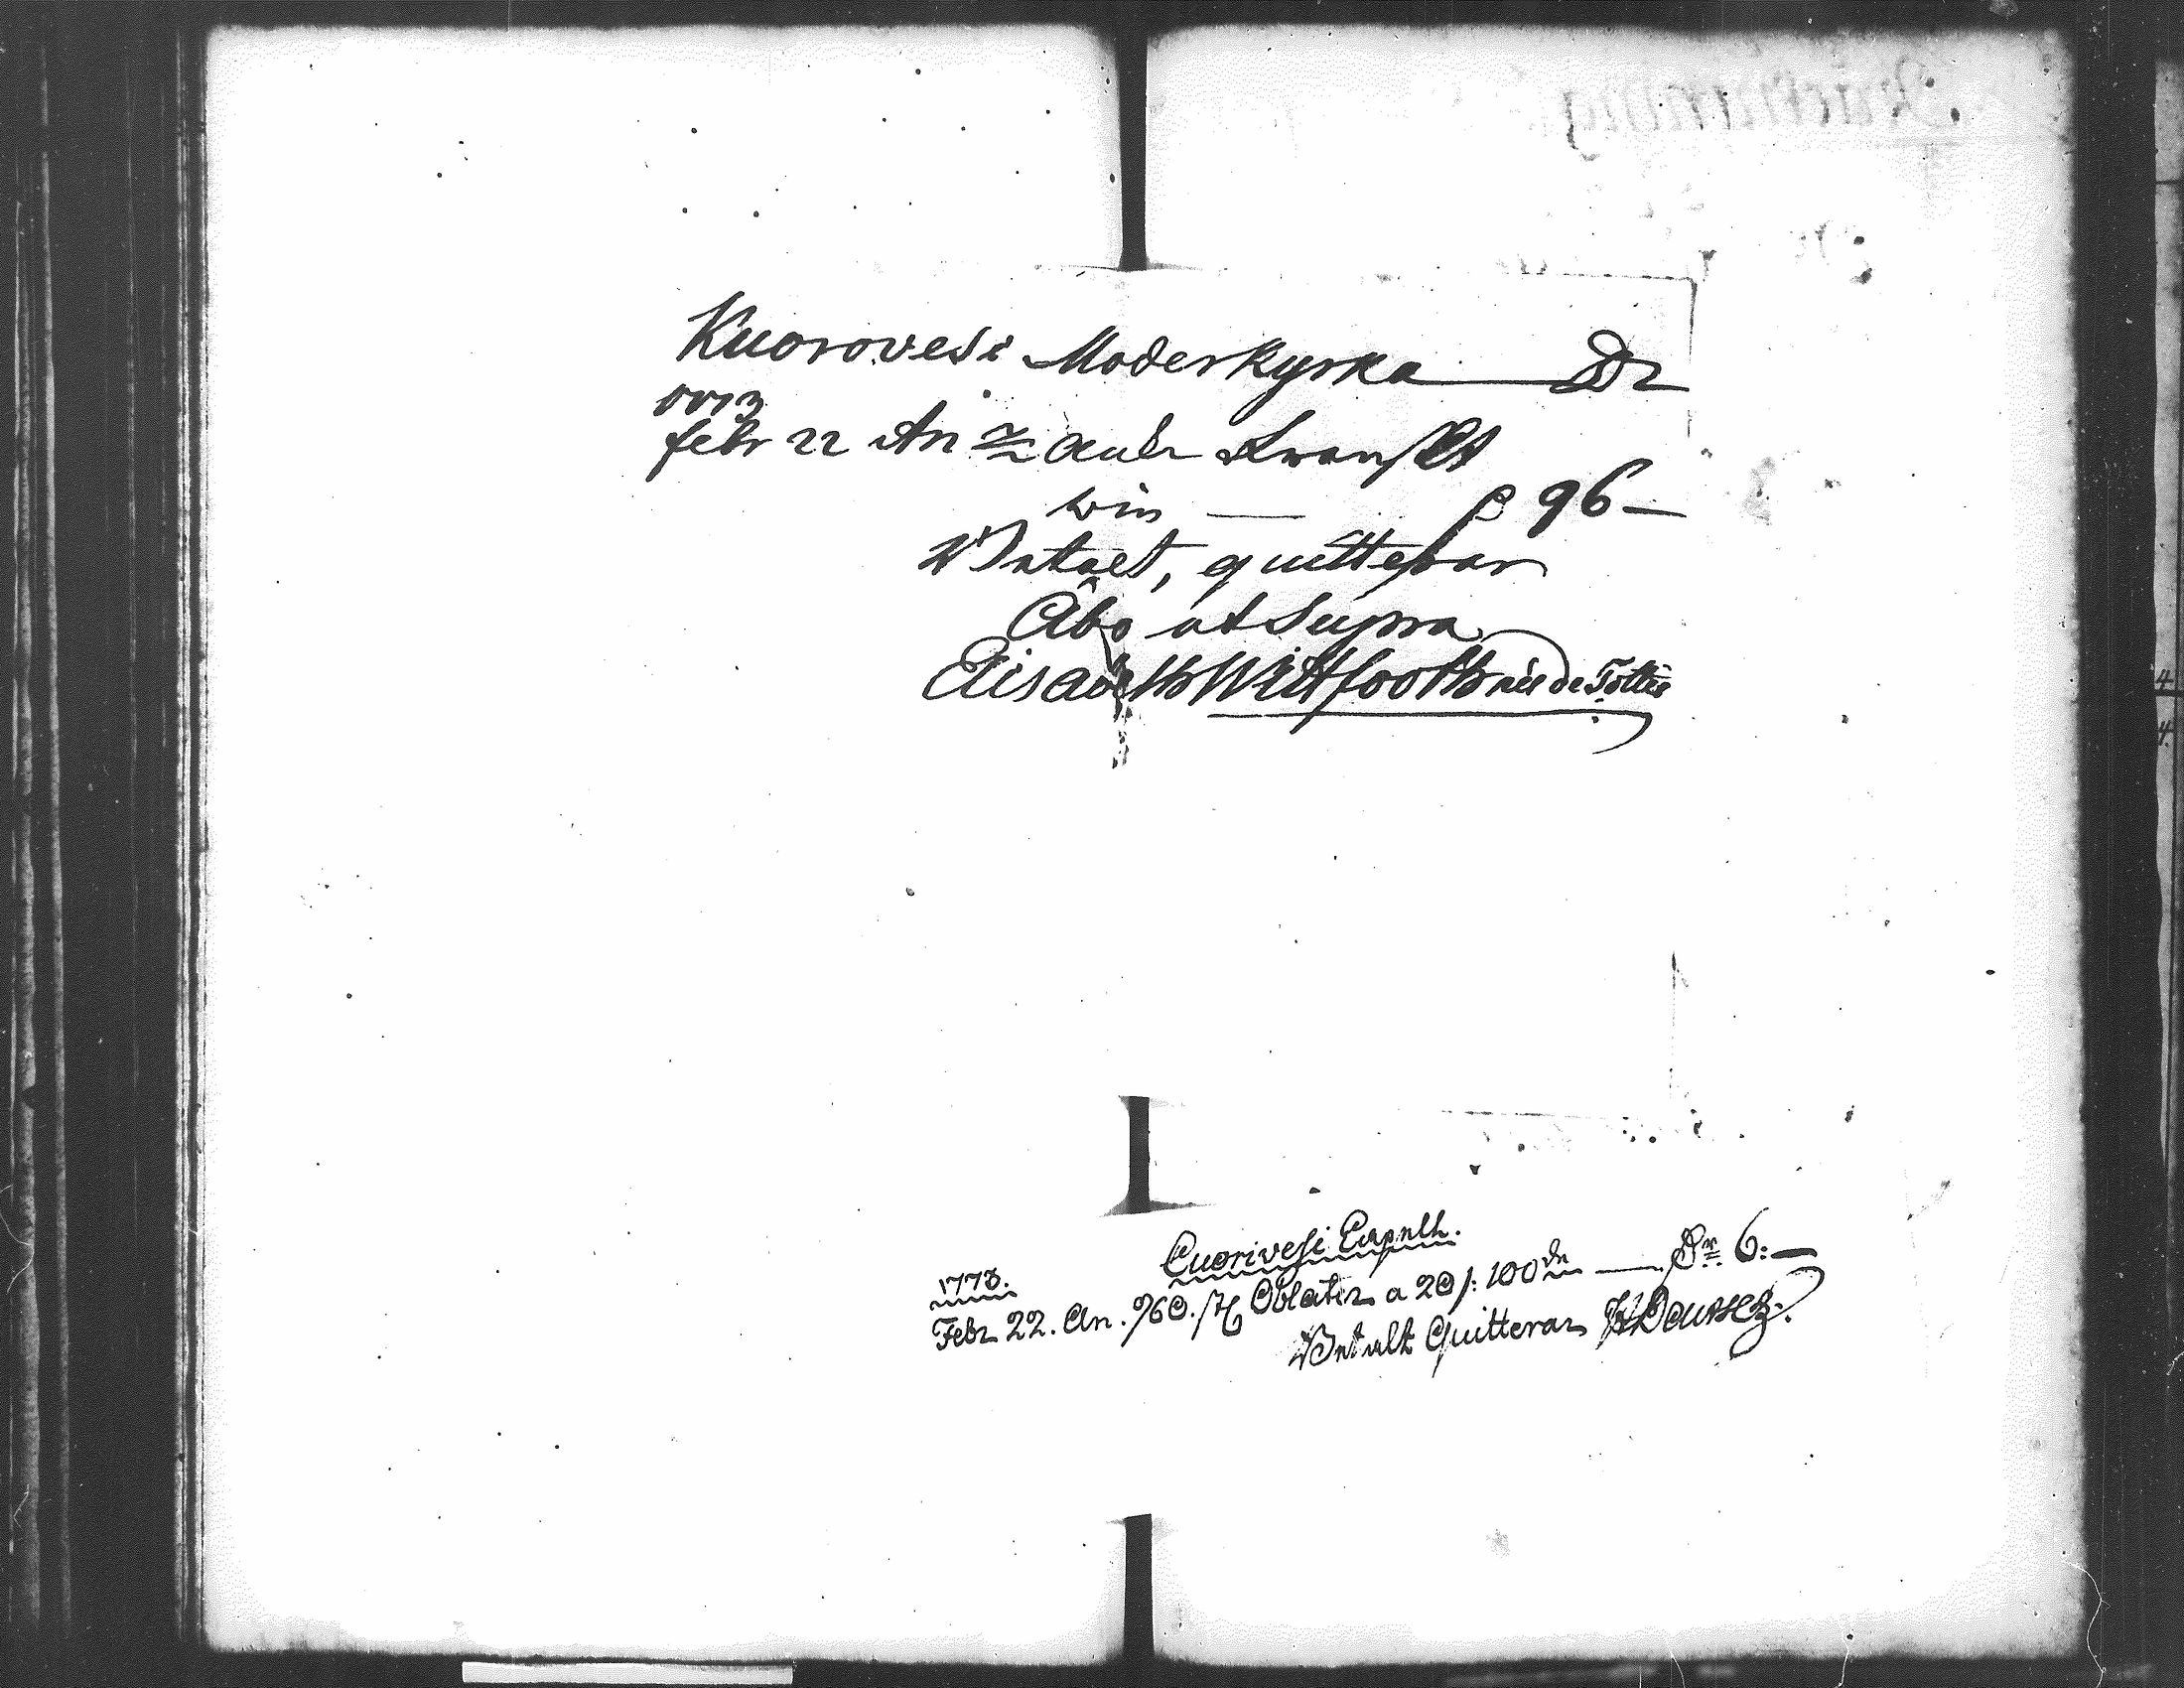 Kuorovesi Moderkyrka Dr
1773
febr 22 An 2 ankr
win — 96 —
Betalt, quitterar
Åbo ut Supra
Elisabeth Wittfooth née de Tottie
Cuorivesi Capell.
1773.
Febr 22. An. 960. st Oblater a 20/: 100de — Dr 6:—
Betalt Quitteras